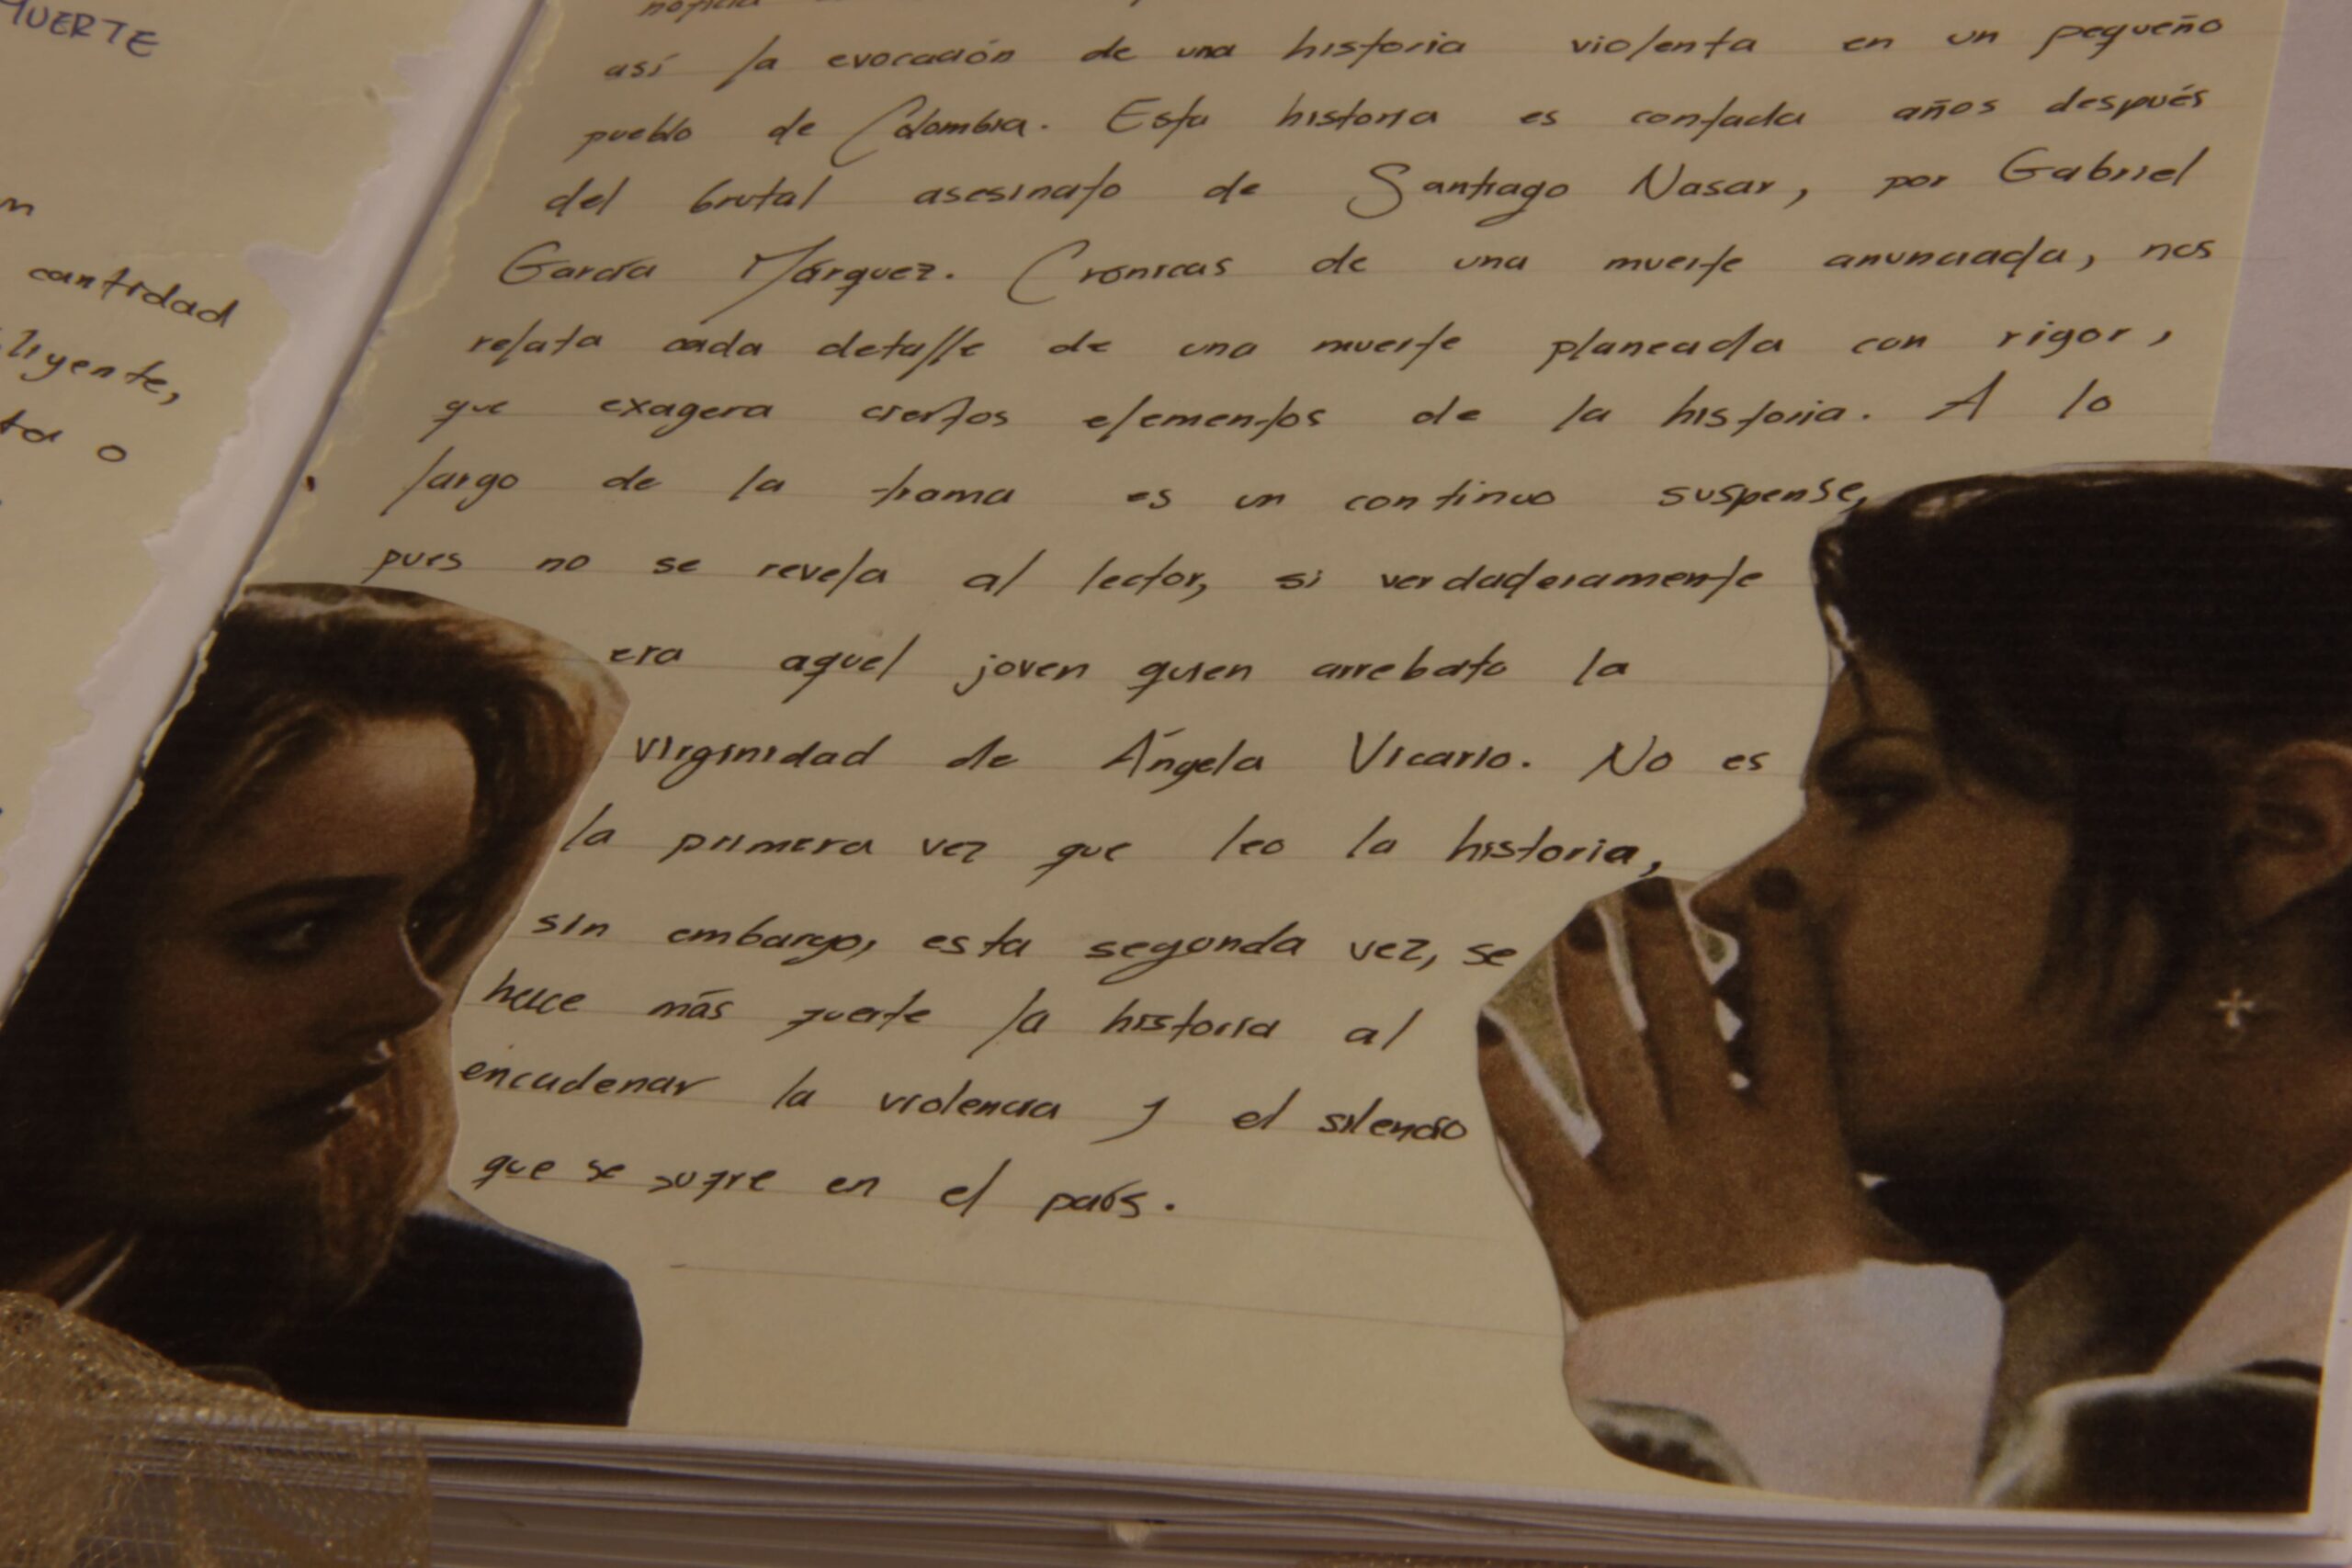 MUERTE
cantidad
ta o
noticia
así la evocación de una historia violenta en un pequeño
pueblo de Colombia. Esta historia es contada años después
del brutal asesinato de Santiago Nasar, por Gabriel
García Márquez. Crónicas de una muerte anunciada, nos
relata cada detalle de una muerte planeada con rigor,
que exagera ciertos elementos de la historia. A lo
largo de la trama es un continuo suspense,
pues no se revela al lector, si verdaderamente
era aquel joven quien arrebato la
virginidad de Ángela Vicario. No es
la primera vez que leo la historia,
sin embargo, esta segunda vez, se
hace más fuerte la historia al
encadenar la violencia y el silencio
que se sufre en el país.